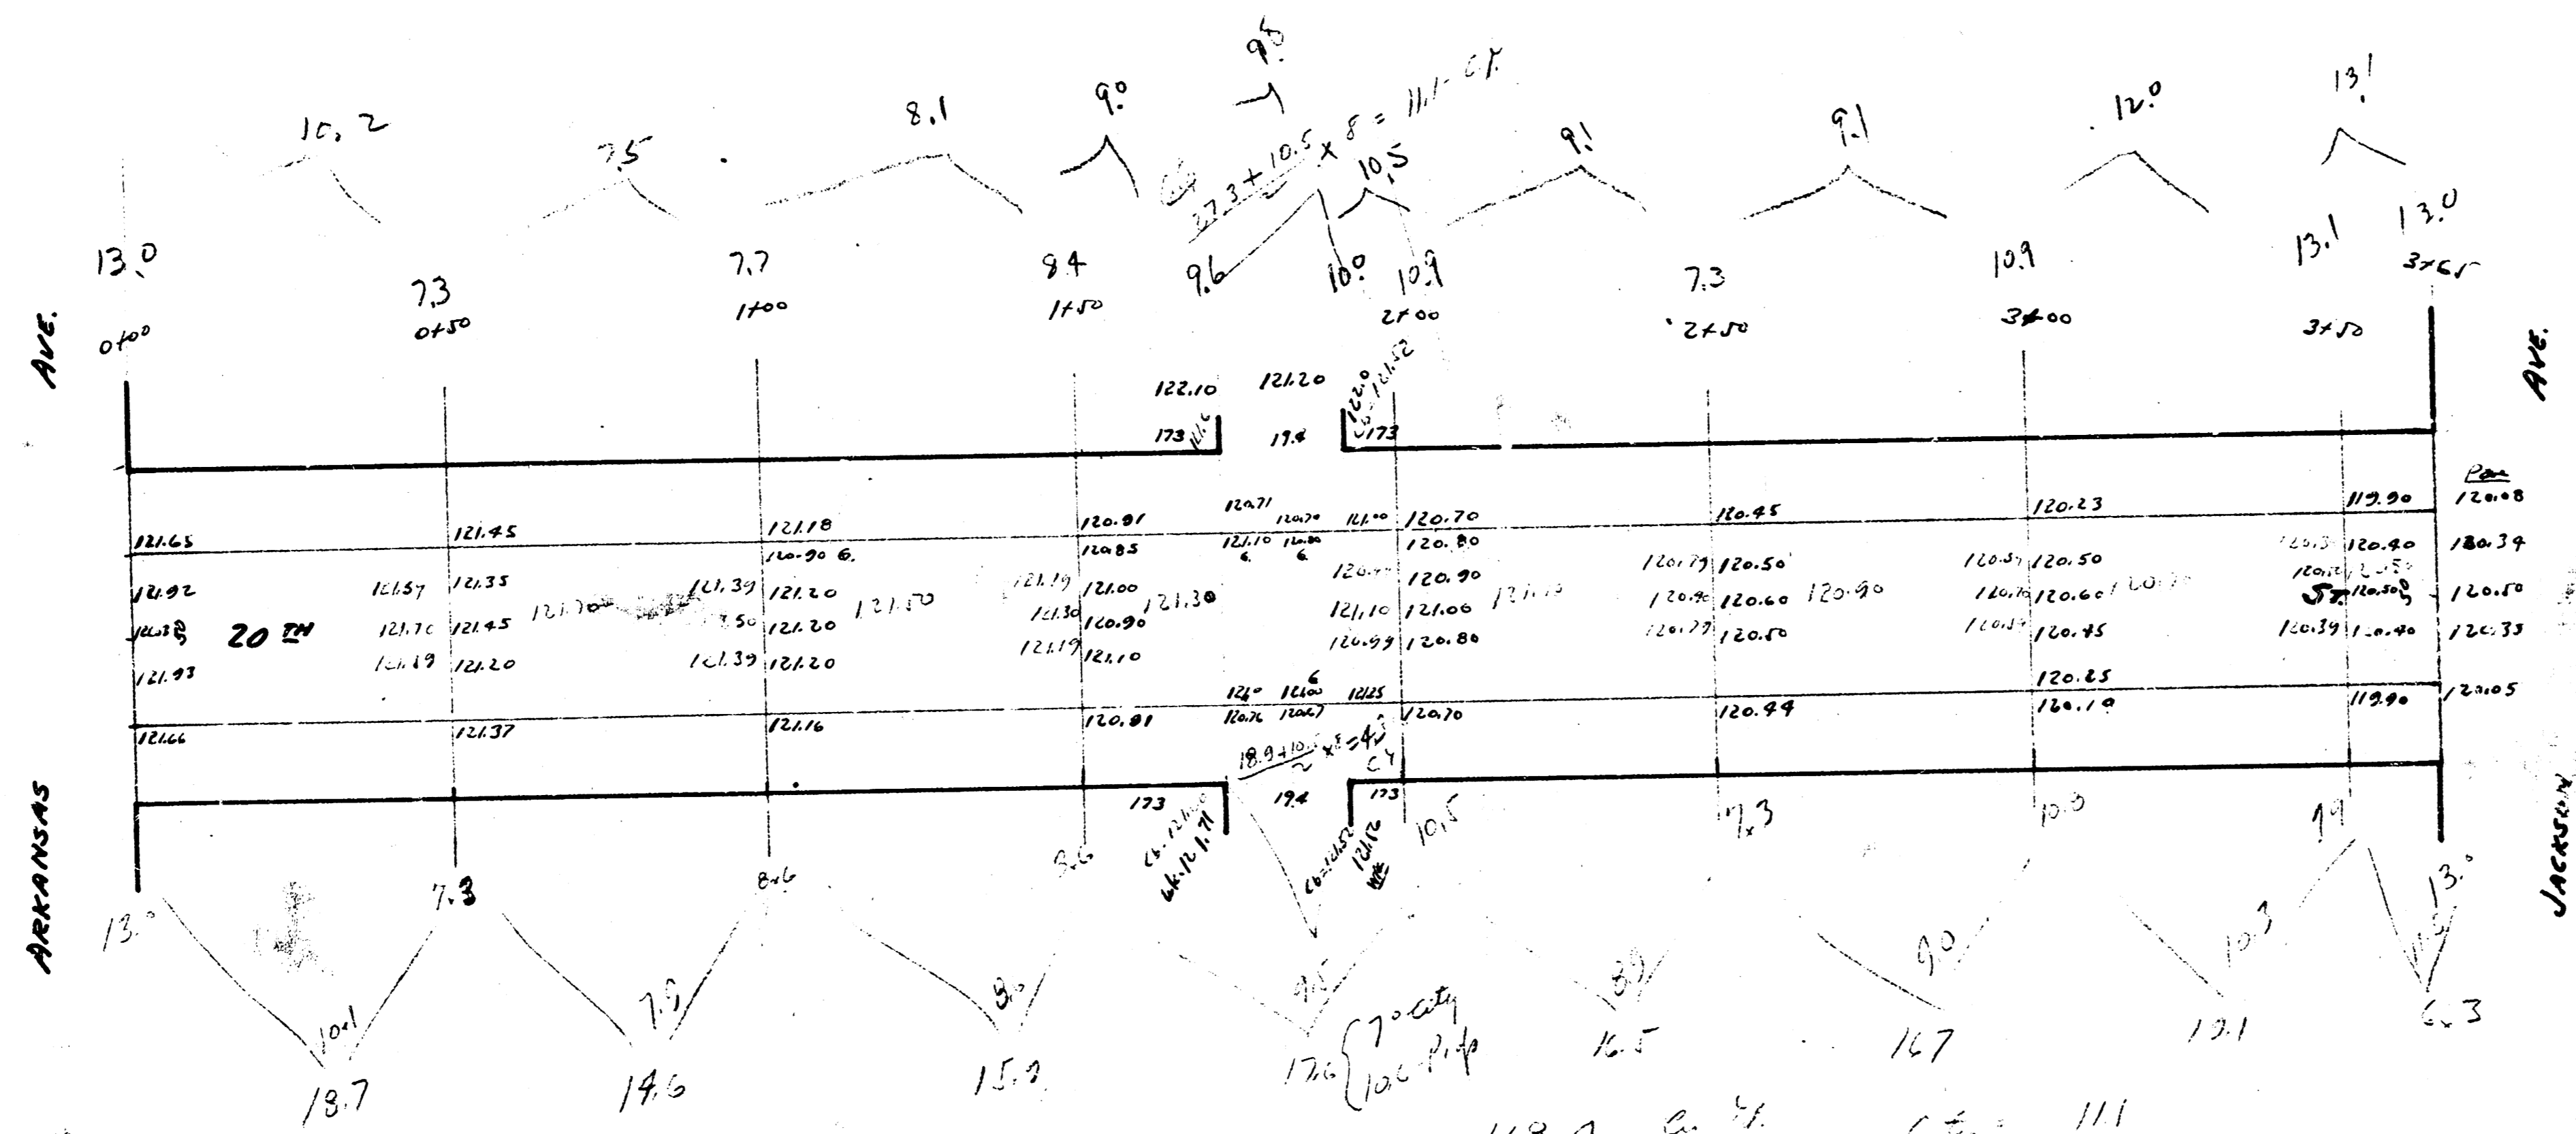 9.8
10.2
7.5
8.1
9.0
27.3 + 10.5 x 8 = 11.1 - C.Y.
2
10.5
9.1
9.1
12.0
13.1
13.0
7.3
7.7
8.4
9.6
10.0
10.9
7.3
10.9
13.1
13.0
0+00
0+50
1+00
1+50
2+00
2+50
3+00
3+50
3+65
AVE.
AVE.
122.10
121.20
122.0
Cb=121.52
173
19.4
173
Pav
121.65
121.45
121.18
120.81
120.71
120.70
121.00
120.70
120.45
120.23
119.90
120.08
120.90 G.
120.85
121.10
G
120.80
G
120.80
120.40
120.34
121.92
121.57
121.35
121.39
121.20
121.19
121.00
120.90
120.79
120.50
120.50
121.70
121.50
121.30
120.90
20TH
ST.
121.70
121.45
121.20
121.30
120.90
121.10
121.00
120.90
120.60
120.70
120.60
120.50
120.50
121.93
121.20
121.39
121.20
121.19
121.10
120.99
120.80
120.79
120.50
120.45
120.39
120.40
120.35
G
121.00
121.25
120.25
121.66
121.37
121.16
120.81
120.76
120.67
120.70
120.44
120.10
119.90
120.05
18.9+10.5 x8=4.
2
C.Y.
173
19.4
173
Wk. 121.71
Cb=121.52
121.52
WK
ARKANSAS
JACKSON
13.0
7.3
8.6
8.6
10.5
7.3
10.0
13.0
10.1
7.9
8.0
9.5
8.9
9.0
10.3
18.7
14.6
15.9
17.6
7.0 City
10.6 Prop
16.5
16.7
19.1
6.3
11.1